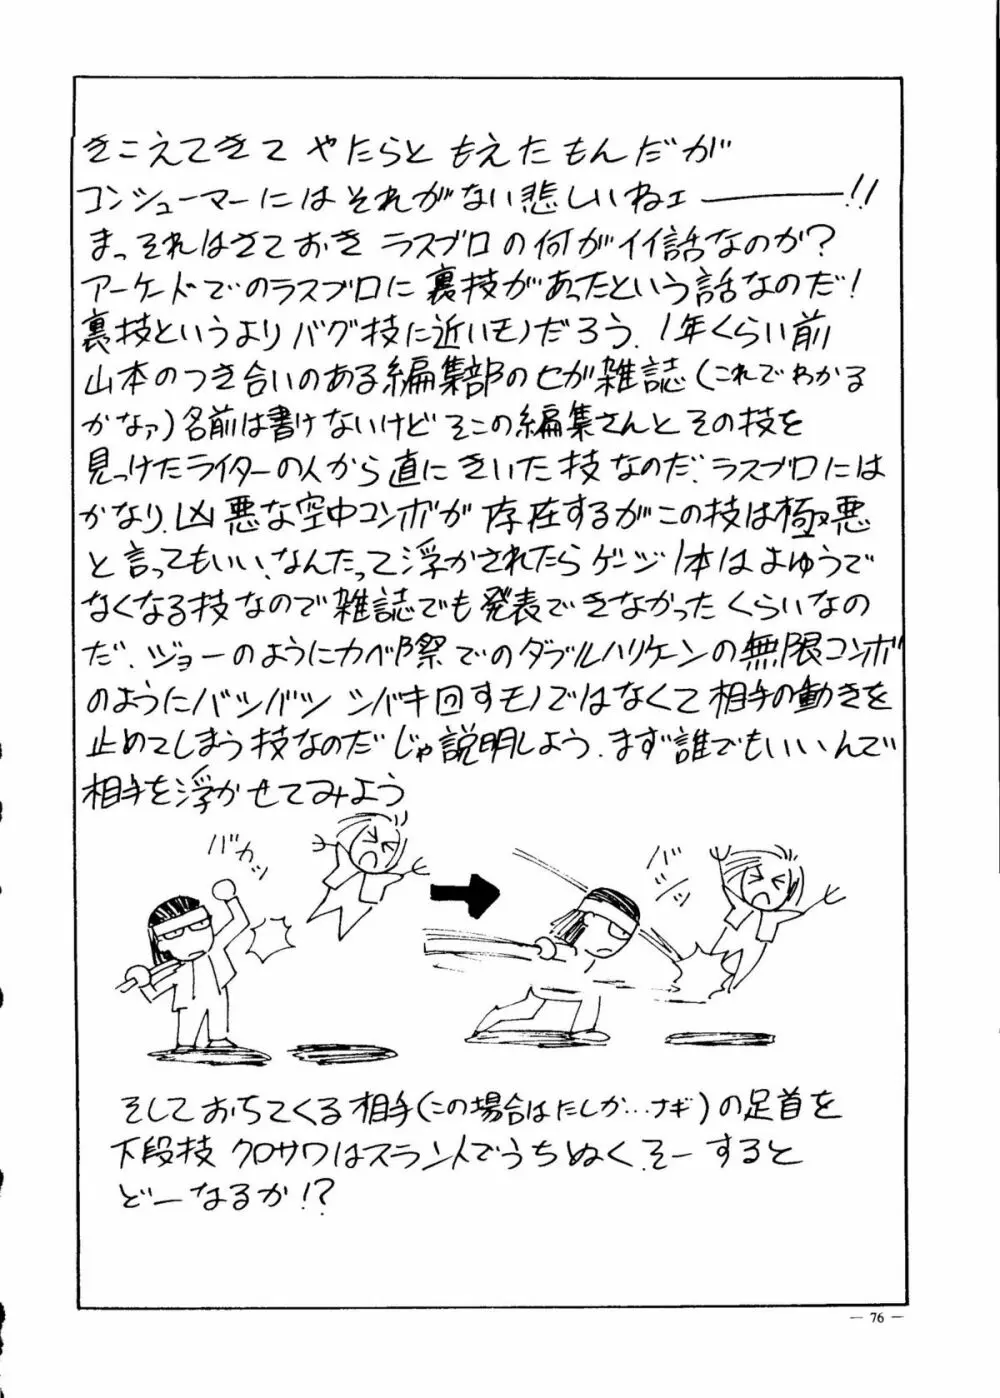 きこえてきて やたらと もえたもんだが
コンシューマーにはそれがない悲しいねェ────!!
まっそれはさておき ラスブロの何がイイ話なのか?
アーケードでのラスブロに裏技があったという話なのだ!
裏技というよりバグ技に近いモノだろう. 1年くらい前
山本のつき合いのある編集部のセガ雑誌(これでわかる
かなァ)名前は書けないけど そこの編集さんと その技を
見つけたライターの人から直にきいた技なのだ. ラスブロには
かなり.凶悪な空中コンボが 存在するがこの技は極悪
と言ってもいい.なんたって浮かされたらゲージ1本はよゆうで
なくなる技なので雑誌でも発表できなかったくらいなの
だ. ジョーのようにカベ際でのダブルハリケーンの無限コンボ
のようにバシバシ シバキ回すモノではなくて相手の動きを
止めてしまう技なのだ じゃ説明しよう.まず誰でもいいんで
相手を浮かせてみよう
バカッ
バシッ
そしておちてくる相手(この場合はたしか…ナギ)の足首を
下段技 クロサワはスラントでうちぬく.そーすると
どーなるか!?
— 76 —